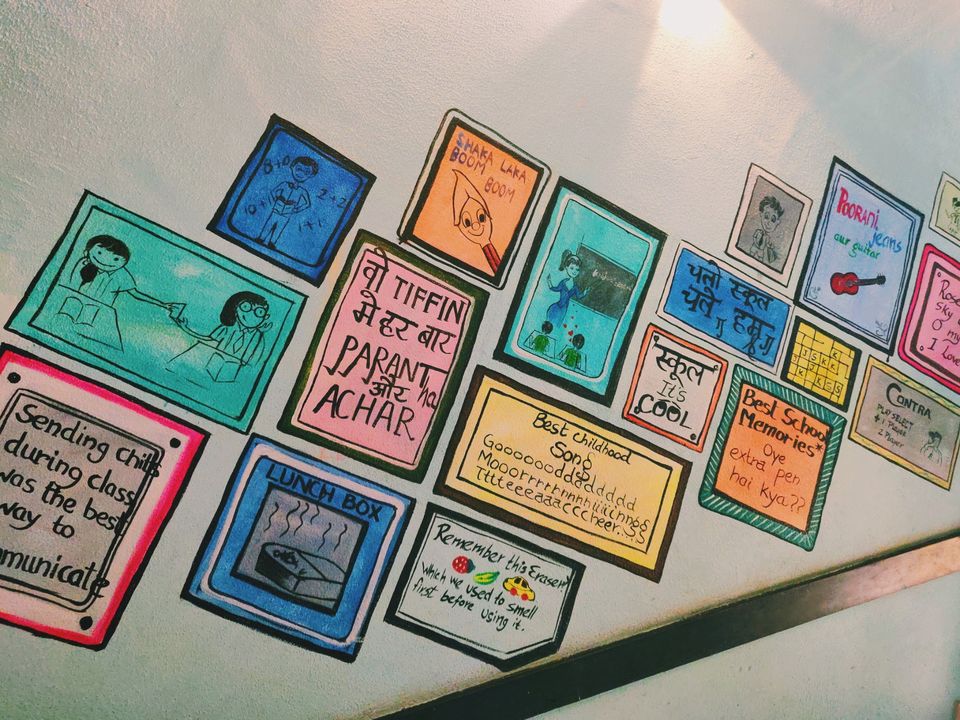 8+0
2+2
SHAKA LAKA
BOOM
BOOM
वो TIFFIN
मे हर बार
PARANTha
और
ACHAR
चलो स्कूल
चले हम
स्कूल
It's
COOL
POORANI
jeans
our guitar
Rose
sky
O my
I Love
CONTRA
PLAY SELECT
1 Player
2 Player.
Best School
Memories*
Oye
extra pen
hai kya??
Best childhood
Song
Sending chits
during class
was the best
way to
mmunicate
LUNCH BOX
Remember this Eraser?
which we used to smell
first before using it.